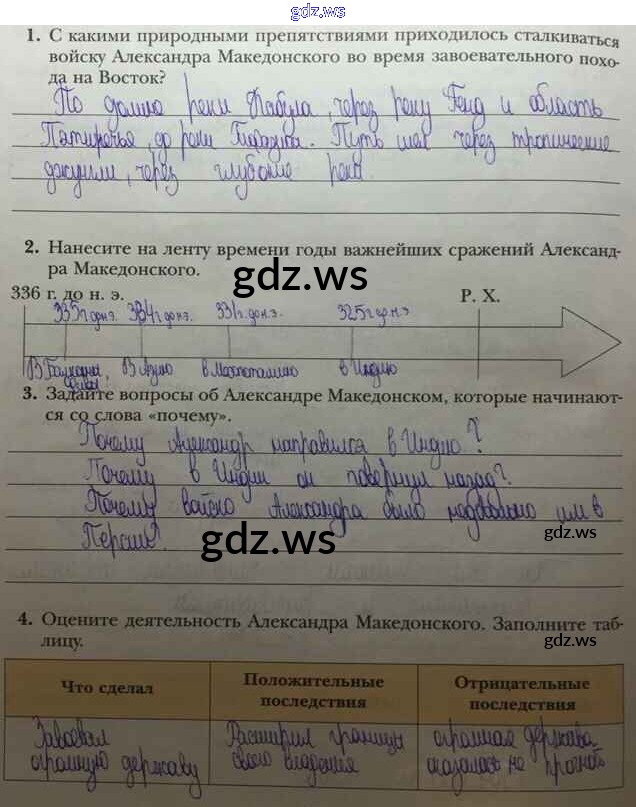 gdz.ws
1. С какими природными препятствиями приходилось сталкиваться
войску Александра Македонского во время завоевательного похо-
да на Восток?
По долине реки Кабула, через реку Генд и область
Пятиречья, до реки Шел через тропические
джунгли, через глубокие реки
2. Нанесите на ленту времени годы важнейших сражений Александ-
ра Македонского.
gdz.ws
336 г. до н. э.
Р. Х.
335г до н.э. 334г до н.э. 331г. до н.э. 325г до н.э
В Балканы, Фивы В Азию в Месопотамию в Индию
3. Задайте вопросы об Александре Македонском, которые начинают-
ся со слова «почему».
Почему Александр направился в Индию?
Почему в Индии он повернул назад?
Почему войско Александра было недовольно им в
Персии?
gdz.ws
gdz.ws
4. Оцените деятельность Александра Македонского. Заполните таб-
лицу.
Что сделал
Положительные
последствия
Отрицательные
последствия
Завоевал
огромную державу
Расширил границы
своего владения
огромная держава
оказалась не прочной
gdz.ws